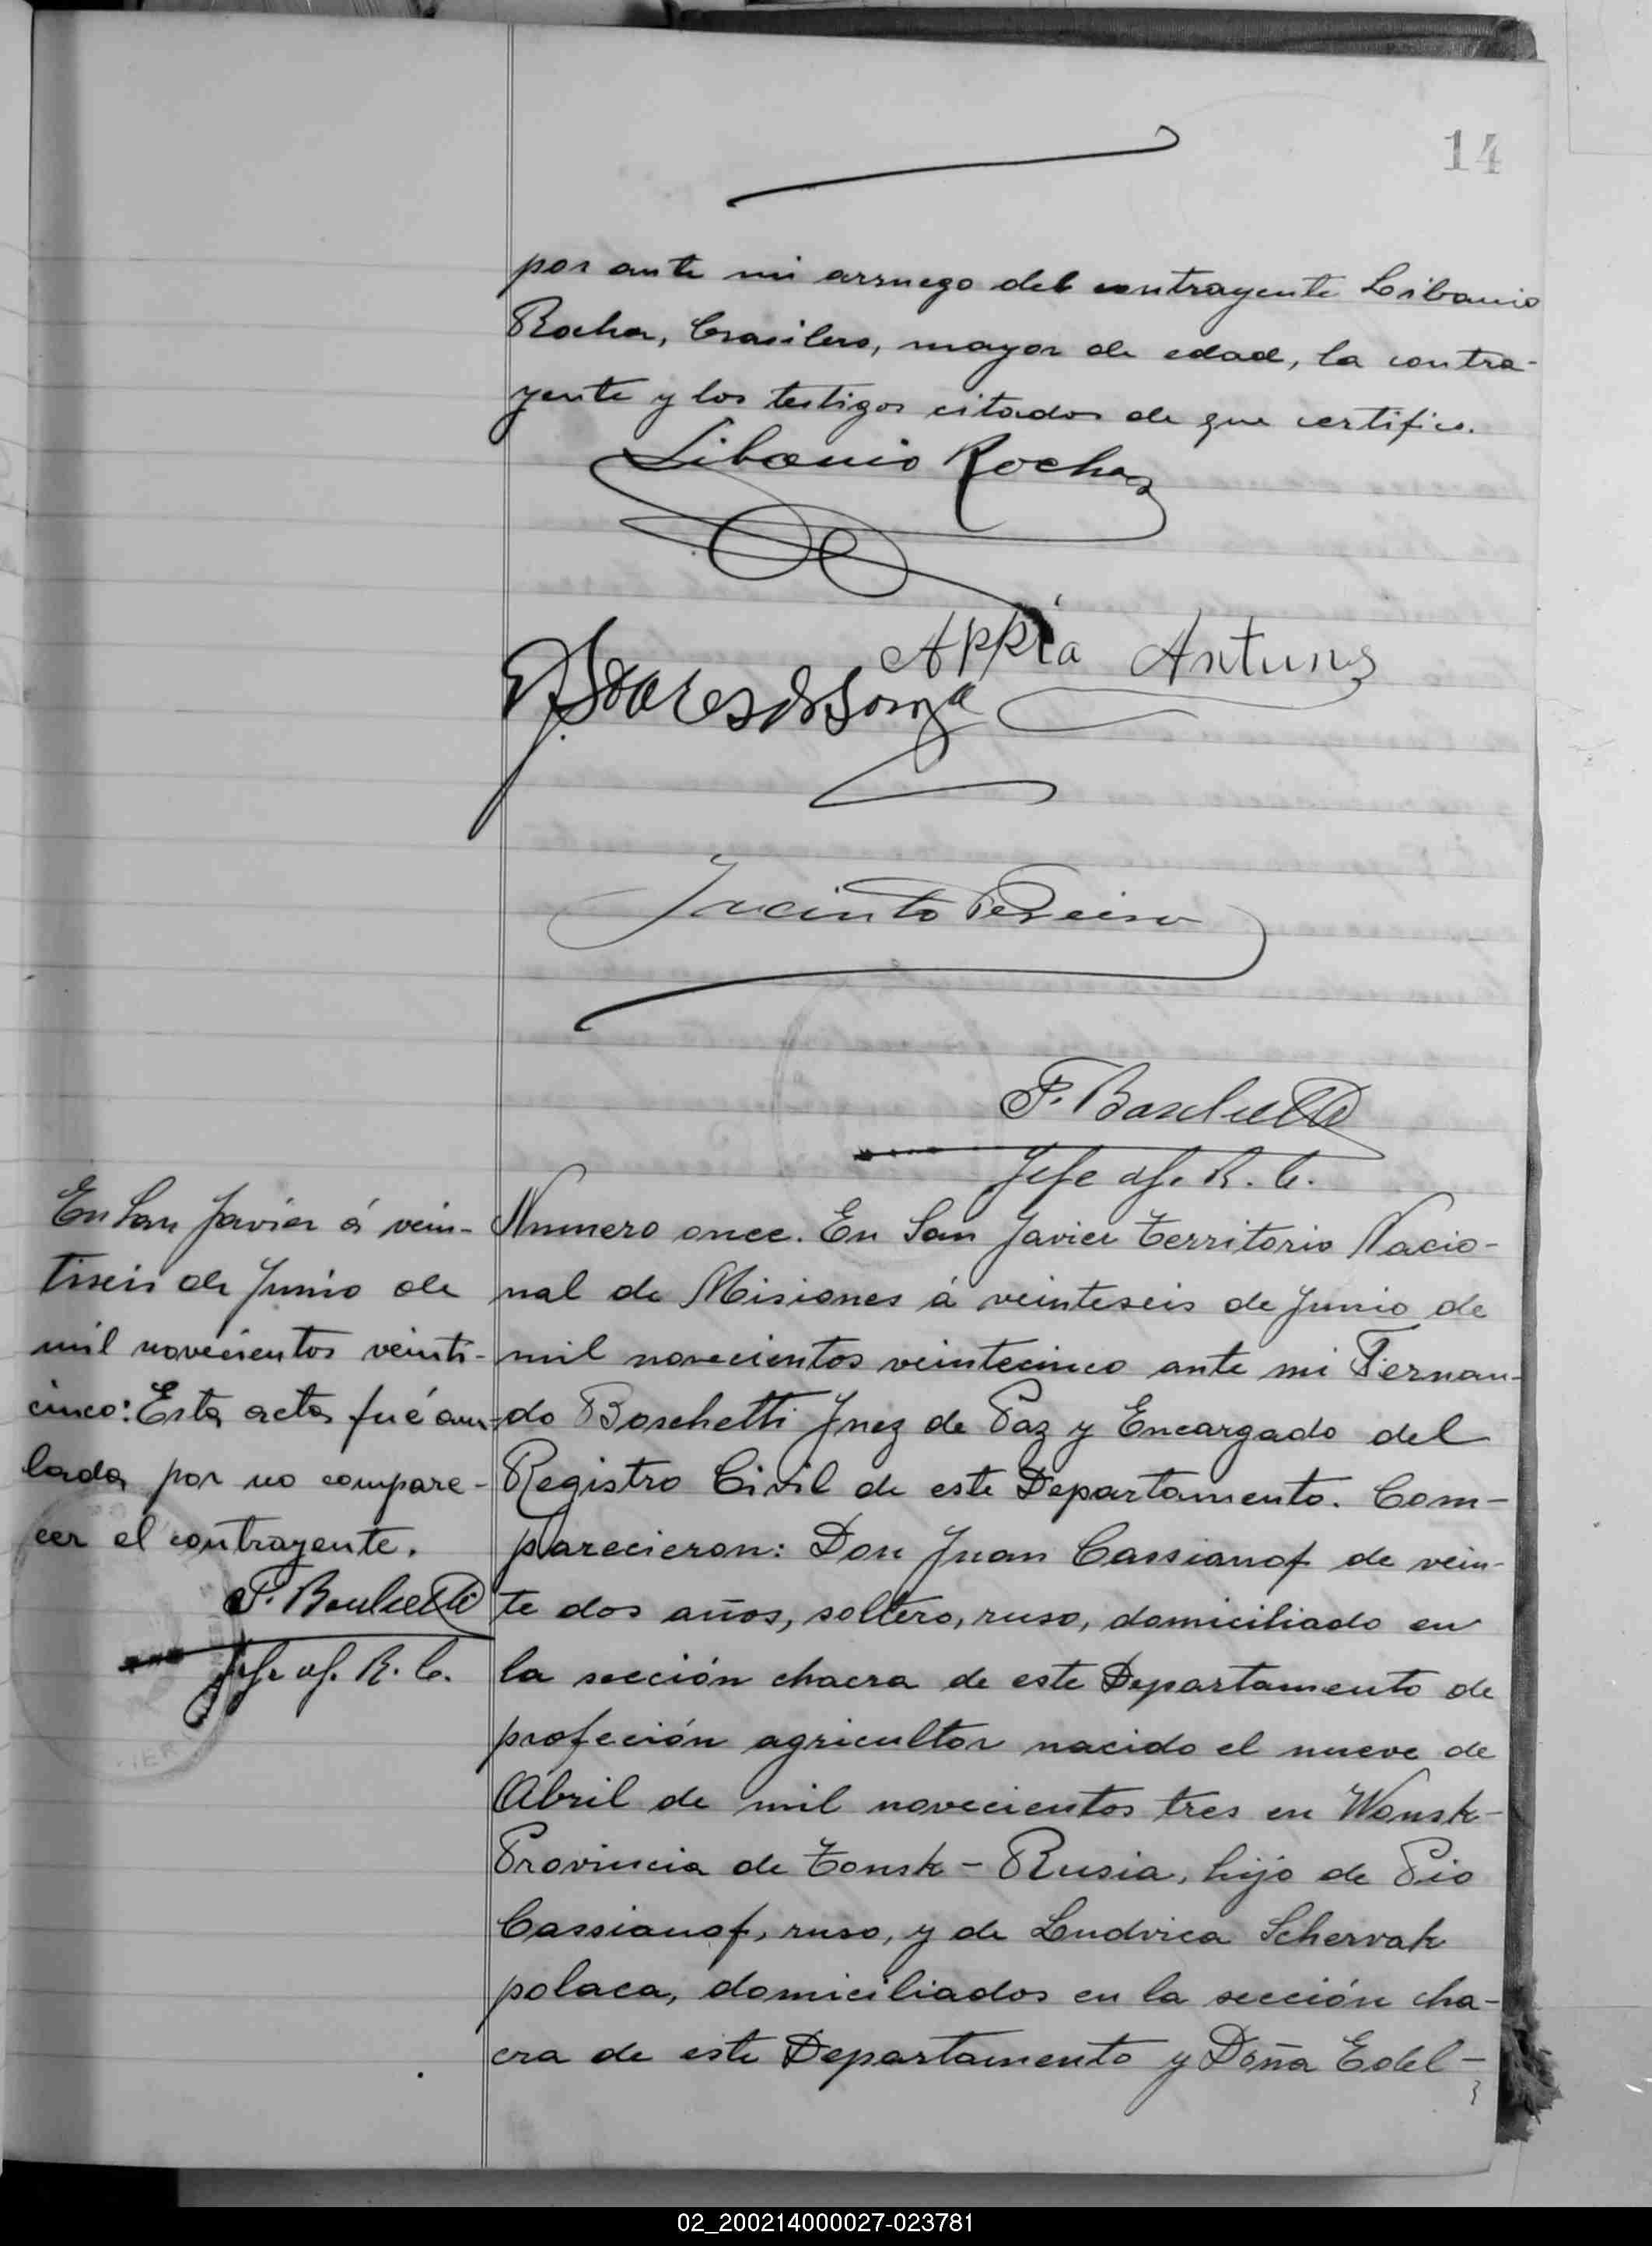 14
por ante mi arruego del contrayente Libanio
Rocha, brasilero, mayor de edad, la contra-
yente y los testigos citados de que certifico.
Libanio Rocha
Appia Antunes
Soares de Souza
Jacinto Pereira
F. Boschetti
Jefe of. R. C.
En San Javier á vein-
tiseis de Junio de
mil novecientos veinti-
cinco: Esta acta fué anu-
lada por no compare-
cer el contrayente.
F. Boschetti
Jefe of. R. C.
Numero once. En San Javier Territorio Nacio-
nal de Misiones á veinteseis de Junio de
mil novecientos veintecinco ante mi Fernan-
do Boschetti Juez de Paz y Encargado del
Registro Civil de este Departamento. Com-
parecieron: Don Juan Cassianof de vein-
te dos años, soltero, ruso, domiciliado en
la sección chacra de este Departamento de
profeción agricultor nacido el nueve de
Abril de mil novecientos tres en Wonsk-
Provincia de Tonsk - Rusia, hijo de Pio
Cassianof, ruso, y de Ludvica Schervak
polaca, domiciliados en la sección cha-
cra de este Departamento y Doña Edel-
02_200214000027-023781